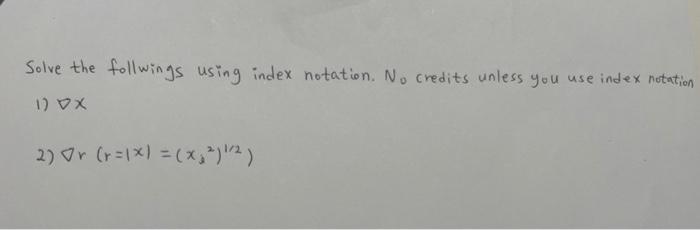 Solve the follwings using index notation. No credits unless you use index notation
1) ∇x
2) ∇r (r=|x| = (xⱼ²)^1/2)